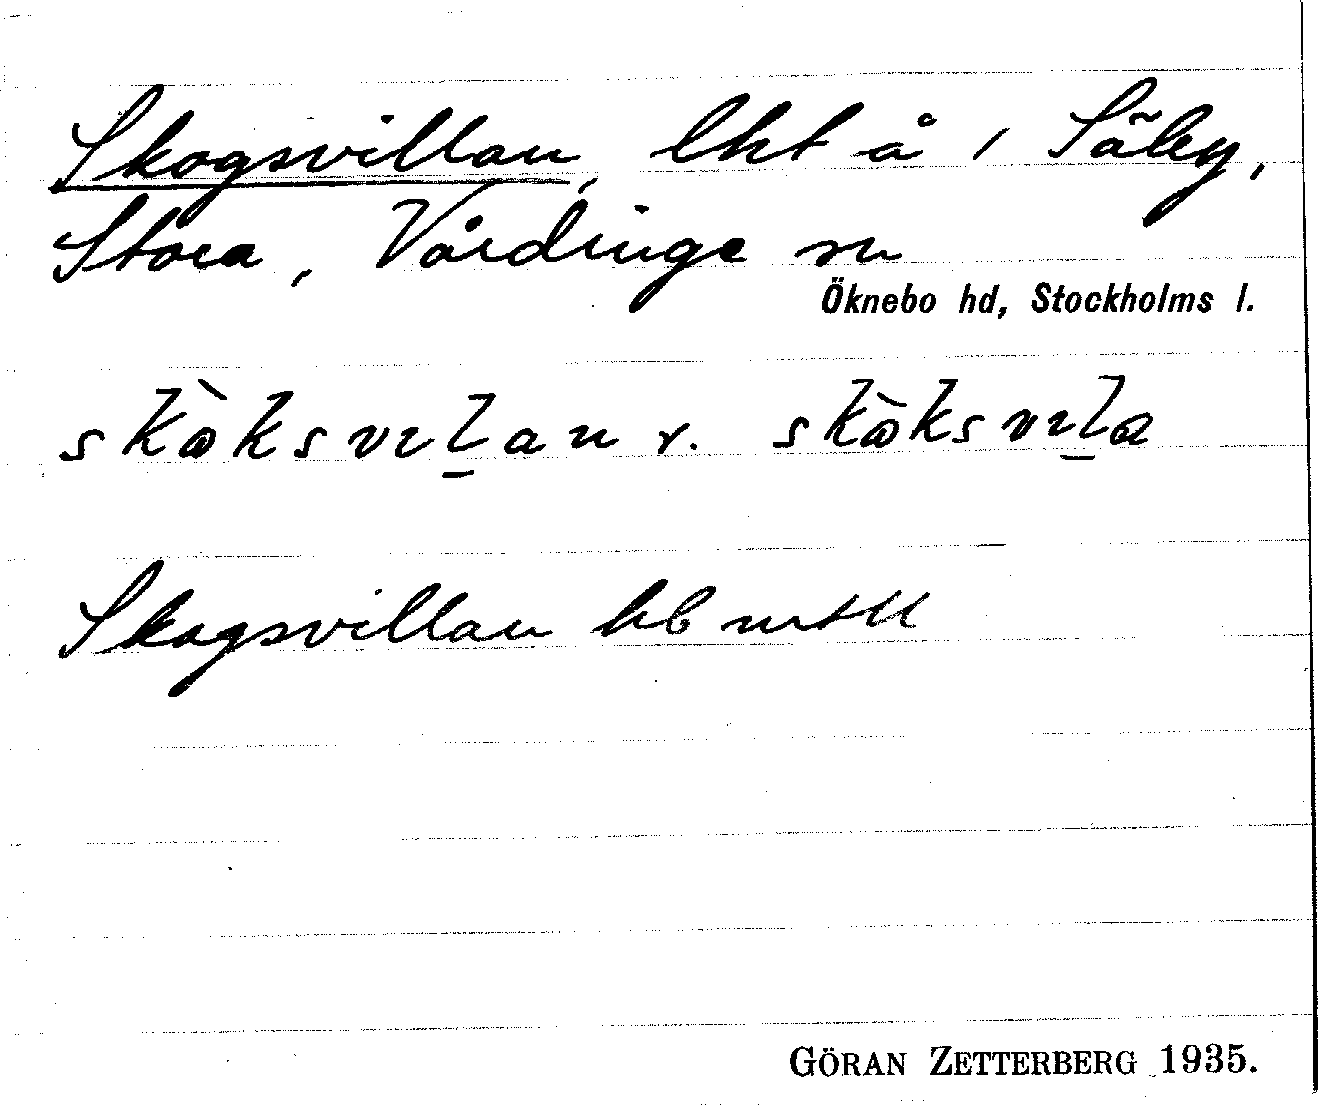 Skogsvillan, lht å 1 Säby,
Stora, Vårdinge sn
Öknebo hd, Stockholms l.
skò̀ksvılan r. skò̀ksvıla
Skogsvillan hb mtll
GÖRAN ZETTERBERG 1935.